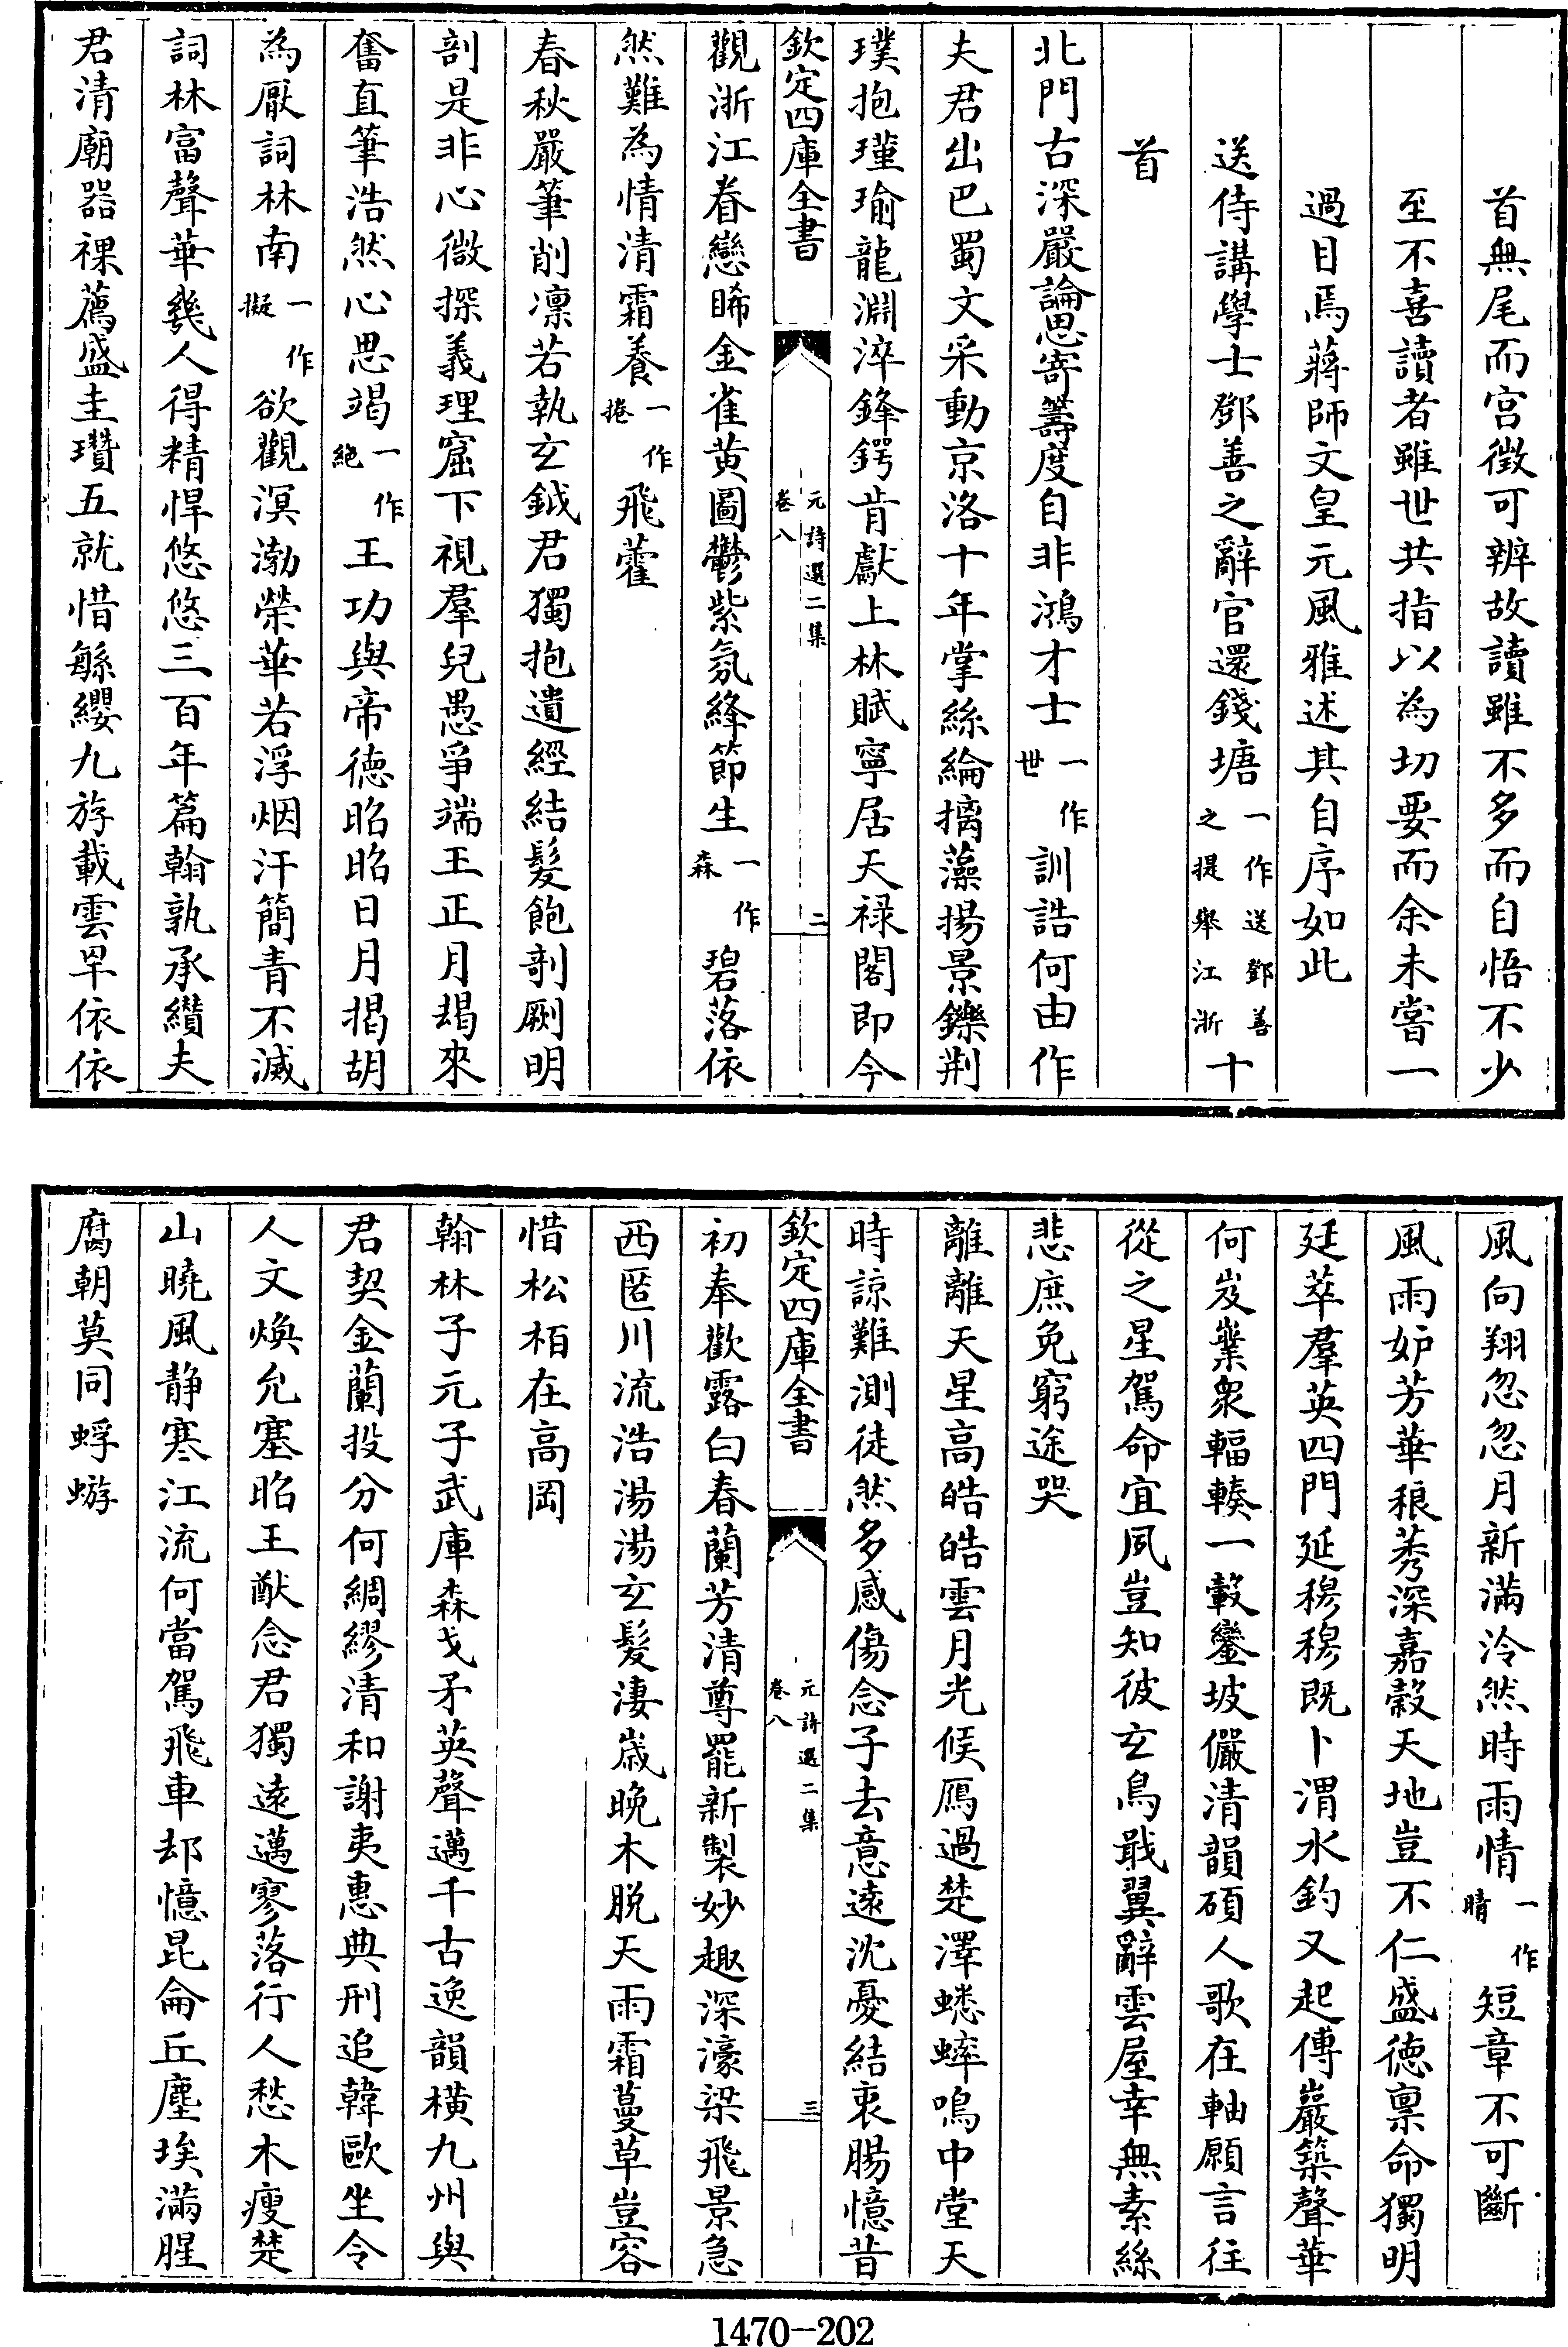 首無尾而宫徴可辨故讀雖不多而自悟不少
至不喜讀者雖世共指以為切要而余未嘗一
過目焉蔣師文皇元風雅述其自序如此
送侍講學士鄧善之辭官還錢塘一作送鄧善之提舉江浙十
首
北門古深嚴論思寄籌度自非鴻才士一作世訓誥何由作
夫君出巴蜀文采動京洛十年掌絲綸摛藻揚景鑠荆
璞抱瑾瑜龍淵淬鋒鍔肯獻上林賦寧居天禄閣即今
欽定四庫全書
元詩選二集
卷八
二
觀浙江眷戀晞金雀黄圖鬱紫氛絳節生一作森碧落依
然難為情清霜養一作捲飛藿
春秋嚴筆削凛若執玄鉞君獨抱遺經結髮飽剞劂明
剖是非心微探義理窟下視羣兒愚爭端王正月朅來
奮直筆浩然心思竭一作絶王功與帝德昭昭日月揭胡
為厭詞林南一作擬欲觀溟渤榮華若浮烟汗簡青不滅
詞林富聲華幾人得精悍悠悠三百年篇翰孰承纘夫
君清廟器祼薦盛圭瓚五就惜緐纓九斿載雲䍐依依
風向翔忽忽月新滿泠然時雨情一作晴短章不可斷
風雨妒芳華稂莠深嘉穀天地豈不仁盛德禀命獨明
廷萃羣英四門延穆穆既卜渭水釣又起傅巖築聲華
何岌嶪衆輻輳一轂鑾坡儼清韻碩人歌在軸願言往
從之星駕命宜夙豈知彼玄鳥戢翼辭雲屋幸無素絲
悲庶免窮途哭
離離天星高皓皓雲月光候鴈過楚澤蟋蟀鳴中堂天
時諒難測徒然多感傷念子去意遠沈憂結衷腸憶昔
欽定四庫全書
元詩選二集
卷八
三
初奉歡露白春蘭芳清尊罷新製妙趣深濠梁飛景急
西匿川流浩湯湯玄髮淒歲晚木脱天雨霜蔓草豈容
惜松栢在高岡
翰林子元子武庫森戈矛英聲邁千古逸韻橫九州與
君契金蘭投分何綢繆清和謝夷惠典刑追韓歐坐令
人文煥允塞昭王猷念君獨遠邁寥落行人愁木瘦楚
山曉風静寒江流何當駕飛車却憶昆侖丘塵埃滿腥
腐朝莫同蜉蝣
1470—202